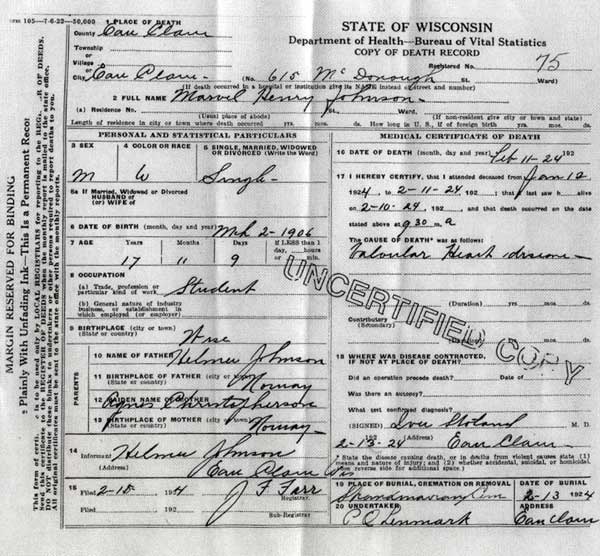 105—7-6-22—50,000
1 PLACE OF DEATH
County Eau Claire
Township
or
Village
or
City Eau Claire
STATE OF WISCONSIN
Department of Health—Bureau of Vital Statistics
COPY OF DEATH RECORD
Registered No. 75
(No. 615 McDonough St. Ward)
(If death occurred in a hospital or institution give its NAME instead of street and number)
2 FULL NAME Marvel Henry Johnson
(a) Residence No. St. Ward.
(Usual place of abode) (If non-resident give city or town and state)
Length of residence in city or town where death occurred yrs. mos. ds. How long in U. S., if of foreign birth yrs. mos. ds.
PERSONAL AND STATISTICAL PARTICULARS
3 SEX 4 COLOR OR RACE 5 SINGLE, MARRIED, WIDOWED
OR DIVORCED (Write the Word)
M W Single
5a If Married, Widowed or Divorced
HUSBAND of
(or) WIFE of
6 DATE OF BIRTH (month, day and year) Mch 2-1906
7 AGE Years Months Days If LESS than 1
day, hours
or min.
17 11 9
8 OCCUPATION
(a) Trade, profession or
particular kind of work Student
(b) General nature of industry
business, or establishment in
which employed (or employer)
9 BIRTHPLACE (city or town)
(State or country) Wisc
PARENTS
10 NAME OF FATHER Helmer Johnson
11 BIRTHPLACE OF FATHER (city or town)
(State or country) Norway
12 MAIDEN NAME OF MOTHER
Agnes Christopherson
13 BIRTHPLACE OF MOTHER (city or town)
(State or country) Norway
14 Informant Helmer Johnson
(Address) Eau Claire Wis
15 Filed 2-15 1924 J F Farr
Registrar.
Filed 192
Sub-Registrar
MEDICAL CERTIFICATE OF DEATH
16 DATE OF DEATH (month, day and year) Feb 11-24 192
17 I HEREBY CERTIFY, that I attended deceased from Jan 12
1924, to 2-11-24, 192 ; that I last saw h alive
on 2-10-24, 192 , and that death occurred on the date
stated above at 930 m. a
The CAUSE OF DEATH* was as follows:
Valvular Heart disease
(Duration) yrs. mos. ds.
Contributory
(Secondary)
(Duration) yrs. mos. ds.
18 WHERE WAS DISEASE CONTRACTED,
IF NOT AT PLACE OF DEATH?
Did an operation precede death? Date of
Was there an autopsy?
What test confirmed diagnosis?
(SIGNED) M. D.
2-13-24 192 (Address) Eau Claire
* State the disease causing death, or in deaths from violent causes state (1)
means and nature of injury; and (2) whether accidental, suicidal, or homicidal.
(See reverse side for additional space.)
19 PLACE OF BURIAL, CREMATION OR REMOVAL DATE OF BURIAL
Scandinavian Cem 2-13 1924
20 UNDERTAKER ADDRESS
Lenmark Eau Claire
UNCERTIFIED COPY
MARGIN RESERVED FOR BINDING
Plainly With Unfading Ink—This is a Permanent Record